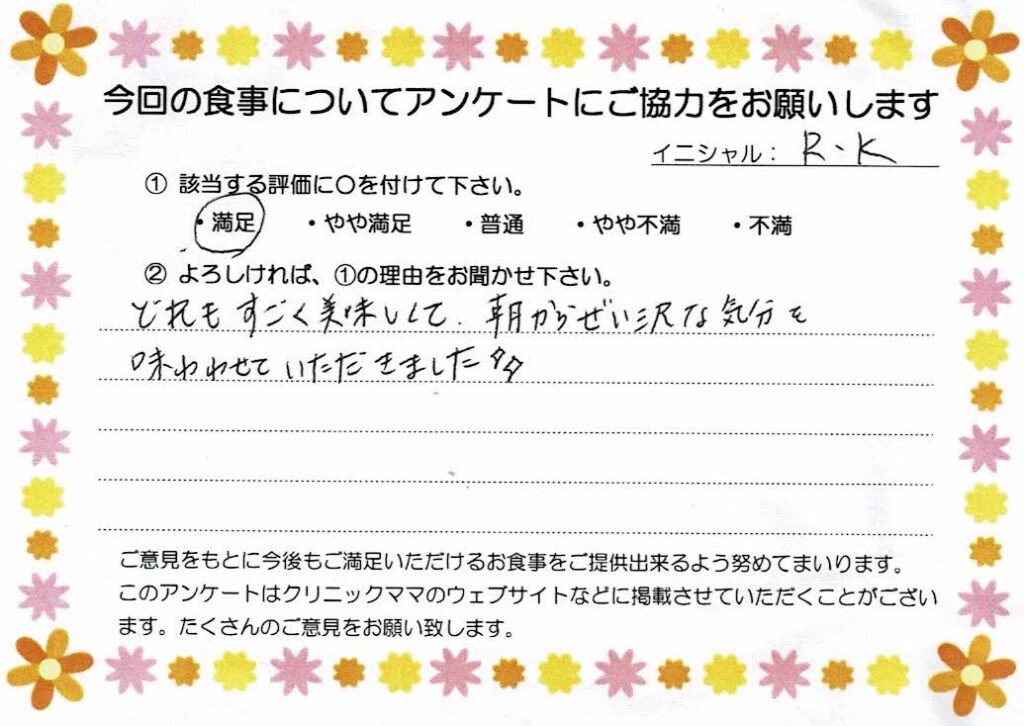 今回の食事についてアンケートにご協力をお願いします
イニシャル： R・K
① 該当する評価に○を付けて下さい。
・満足 ・やや満足 ・普通 ・やや不満 ・不満
② よろしければ、①の理由をお聞かせ下さい。
どれもすごく美味しくて、朝からぜい沢な気分を
味わわせていただきました
ご意見をもとに今後もご満足いただけるお食事をご提供出来るよう努めてまいります。
このアンケートはクリニックママのウェブサイトなどに掲載させていただくことがござい
ます。たくさんのご意見をお願い致します。